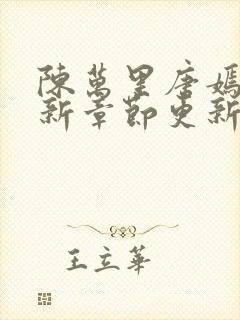 陳萬里唐嫣
新章節更新
王立華